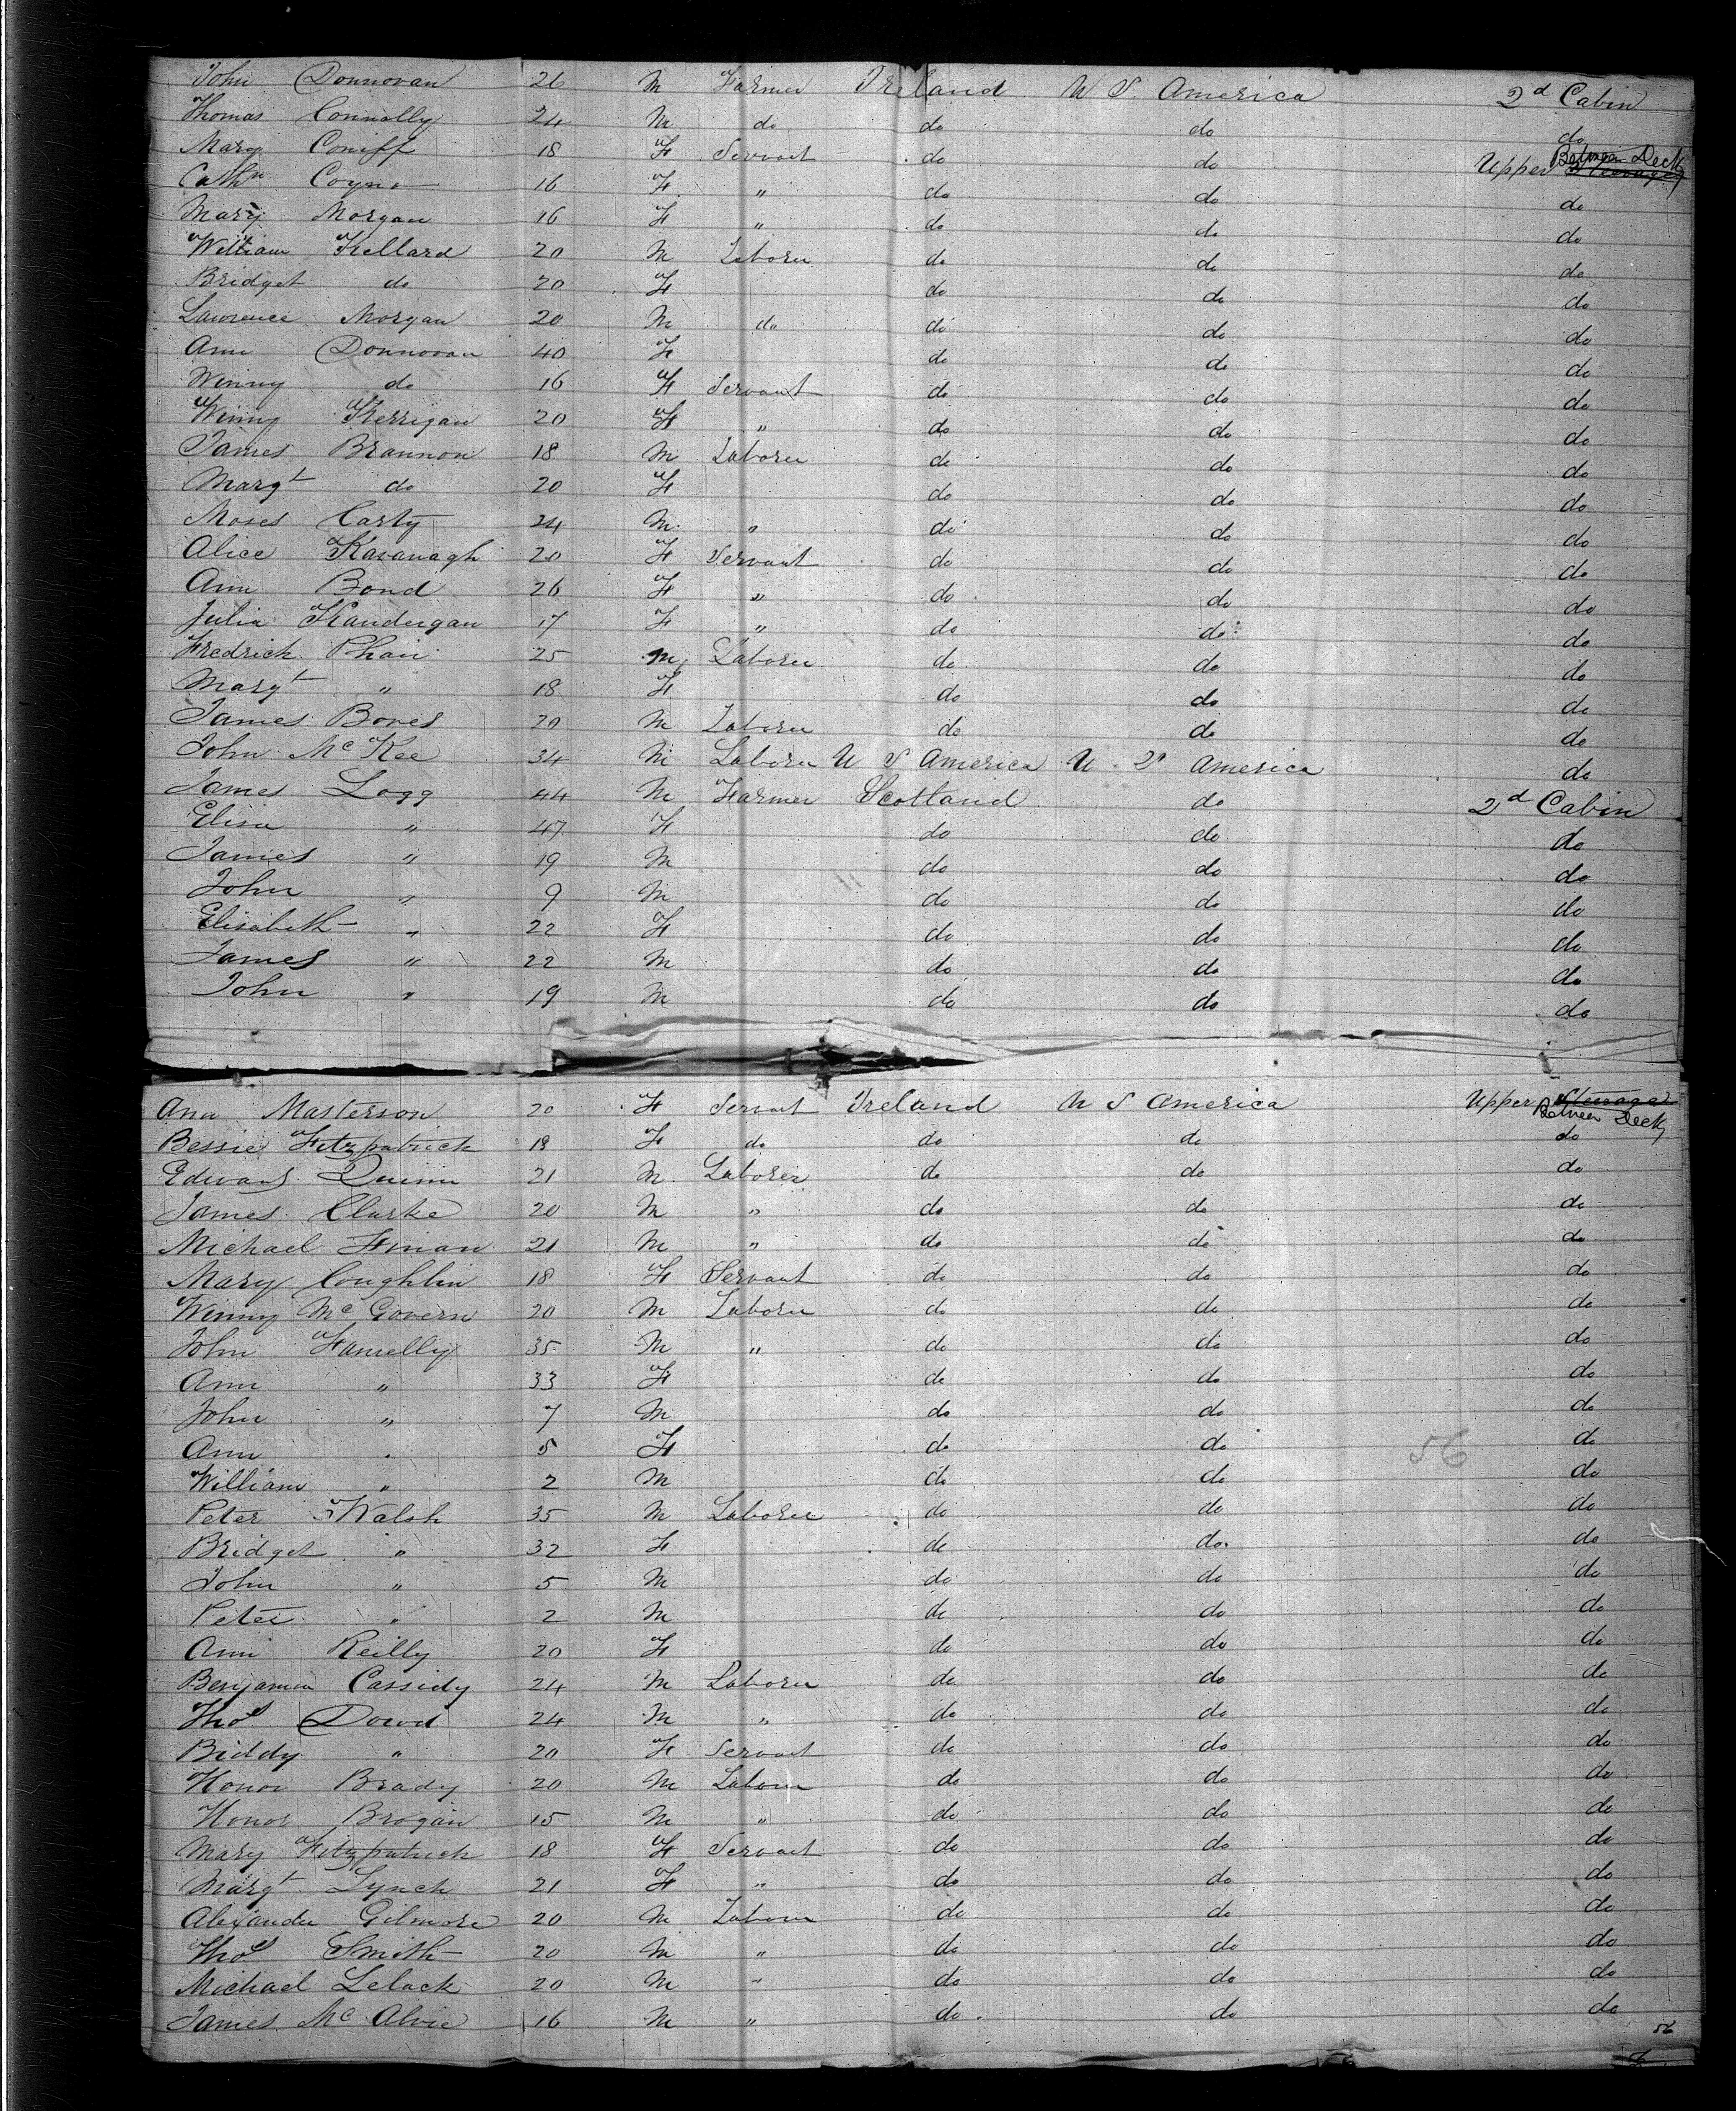 John Donnovan 26 M Farmer Ireland U S America 2d Cabin
Thomas Connolly 24 M do do do do
Mary Coniff 18 F Servant do do Upper Between Deck
Cathn Coyne 16 F " do do do
Mary Morgan 16 F " do do do
William Kellard 20 M Laborer do do do
Bridget do 20 F do do do
Lawrence Morgan 20 M do do do do
Ann Donnovan 40 F do do do
Winny do 16 F Servant do do do
Winny Kerrigan 20 F " do do do
James Brannon 18 M Laborer do do do
Margt do 20 F do do do
Moses Carty 24 M " do do do
Alice Kavanagh 20 F Servant do do do
Ann Bond 26 F " do do do
Julia 17 F " do do do
Fredrick Phair 25 M Laborer do do do
Margt " 18 F do do do
James Bores 20 M Laborer do do do
John McKee 34 M Laborer U S America U S America do
James Logg 44 M Farmer Scotland do 2d Cabin
Elisa " 47 F do do do
James " 19 M do do do
John " 9 M do do do
Elisabeth " 22 F do do do
James " 22 M do do do
John " 19 M do do do
Ann Masterson 20 F Servant Ireland U S America Upper Steerage
Between Deck
Bessie Fitzpatrick 18 F do do do do
Edward Quinn 21 M Laborer do do do
James Clarke 20 M " do do do
Michael Finan 21 M " do do do
Mary Coughlin 18 F Servant do do do
Winny McGovern 20 M Laborer do do do
John Famelly 35 M " do do do
Ann " 33 F do do do
John " 7 M do do do
Ann " 5 F do do do
56
William " 2 M do do do
Peter Walsh 35 M Laborer do do do
Bridget " 32 F do do do
John " 5 M do do do
Peter " 2 M do do do
Ann Reilly 20 F do do do
Benjamin Cassidy 24 M Laborer do do do
Thos Dowd 24 M " do do do
Biddy " 20 F Servant do do do
Honor Brady 20 M Laborer do do do
Honor Brogan 15 M " do do do
Mary Fitzpatrick 18 F Servant do do do
Margt Lynch 21 F " do do do
Alexander Gilmore 20 M Laborer do do do
Thos Smith 20 M " do do do
Michael Lelack 20 M " do do do
James McAlvie 16 M " do do do
56